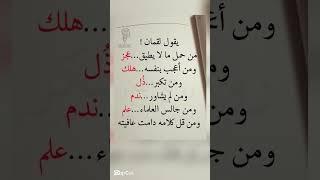 يقول لقمان !
من حمل ما لا يطيق...عجز
ومن أعجب بنفسه...هلك
ومن تكبر...ذُل
ومن لم يشاور...ندم
ومن جالس العلماء...علم
ومن قل كلامه دامت عافيته